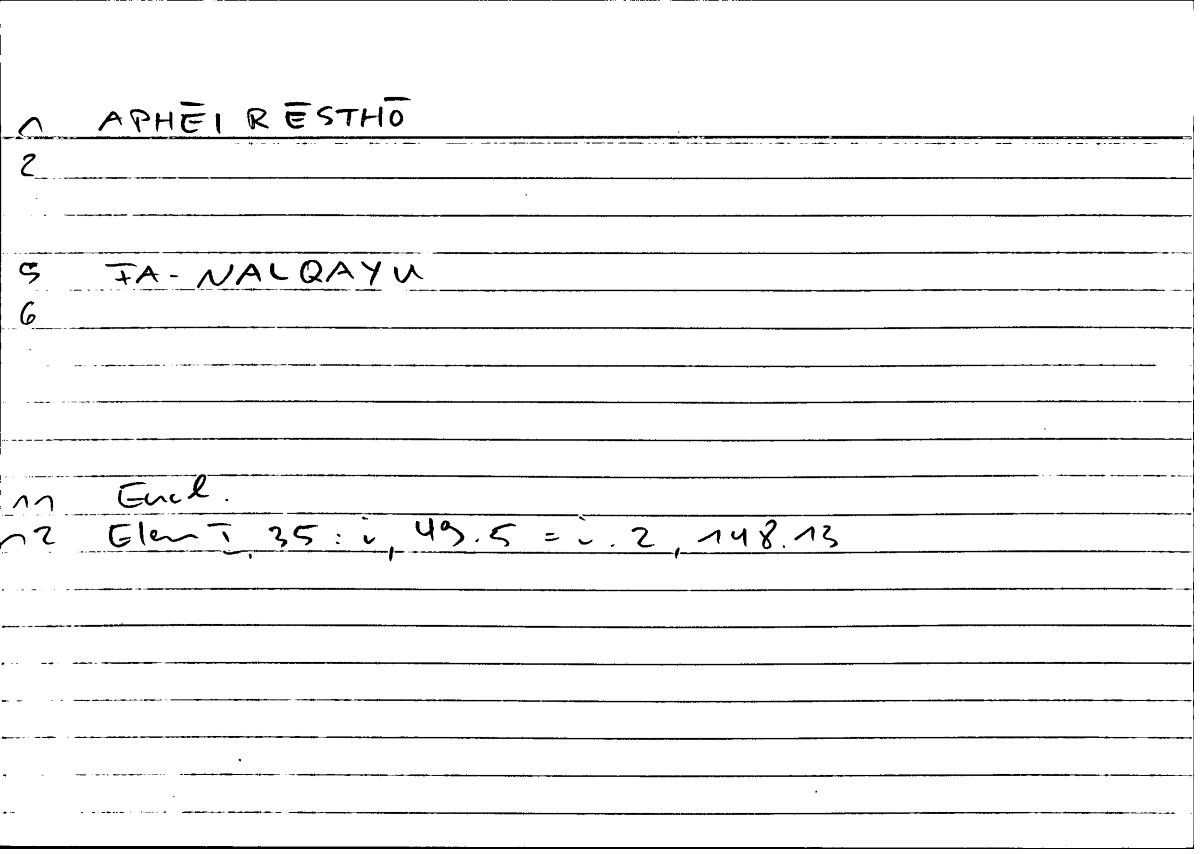 1 APHĒI RĒSTHŌ
2
5 FA-NALQAYU
6
11 Eucl.
12 Elem I, 35 : i, 49.5 = i. 2, 148.13